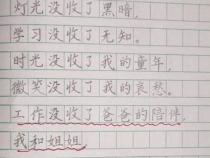 灯光没收了黑暗，
学习没收了无知。
时光没收了我的童年，
微笑没收了我的哀愁。
工作没收了爸爸的陪伴，
我和姐姐